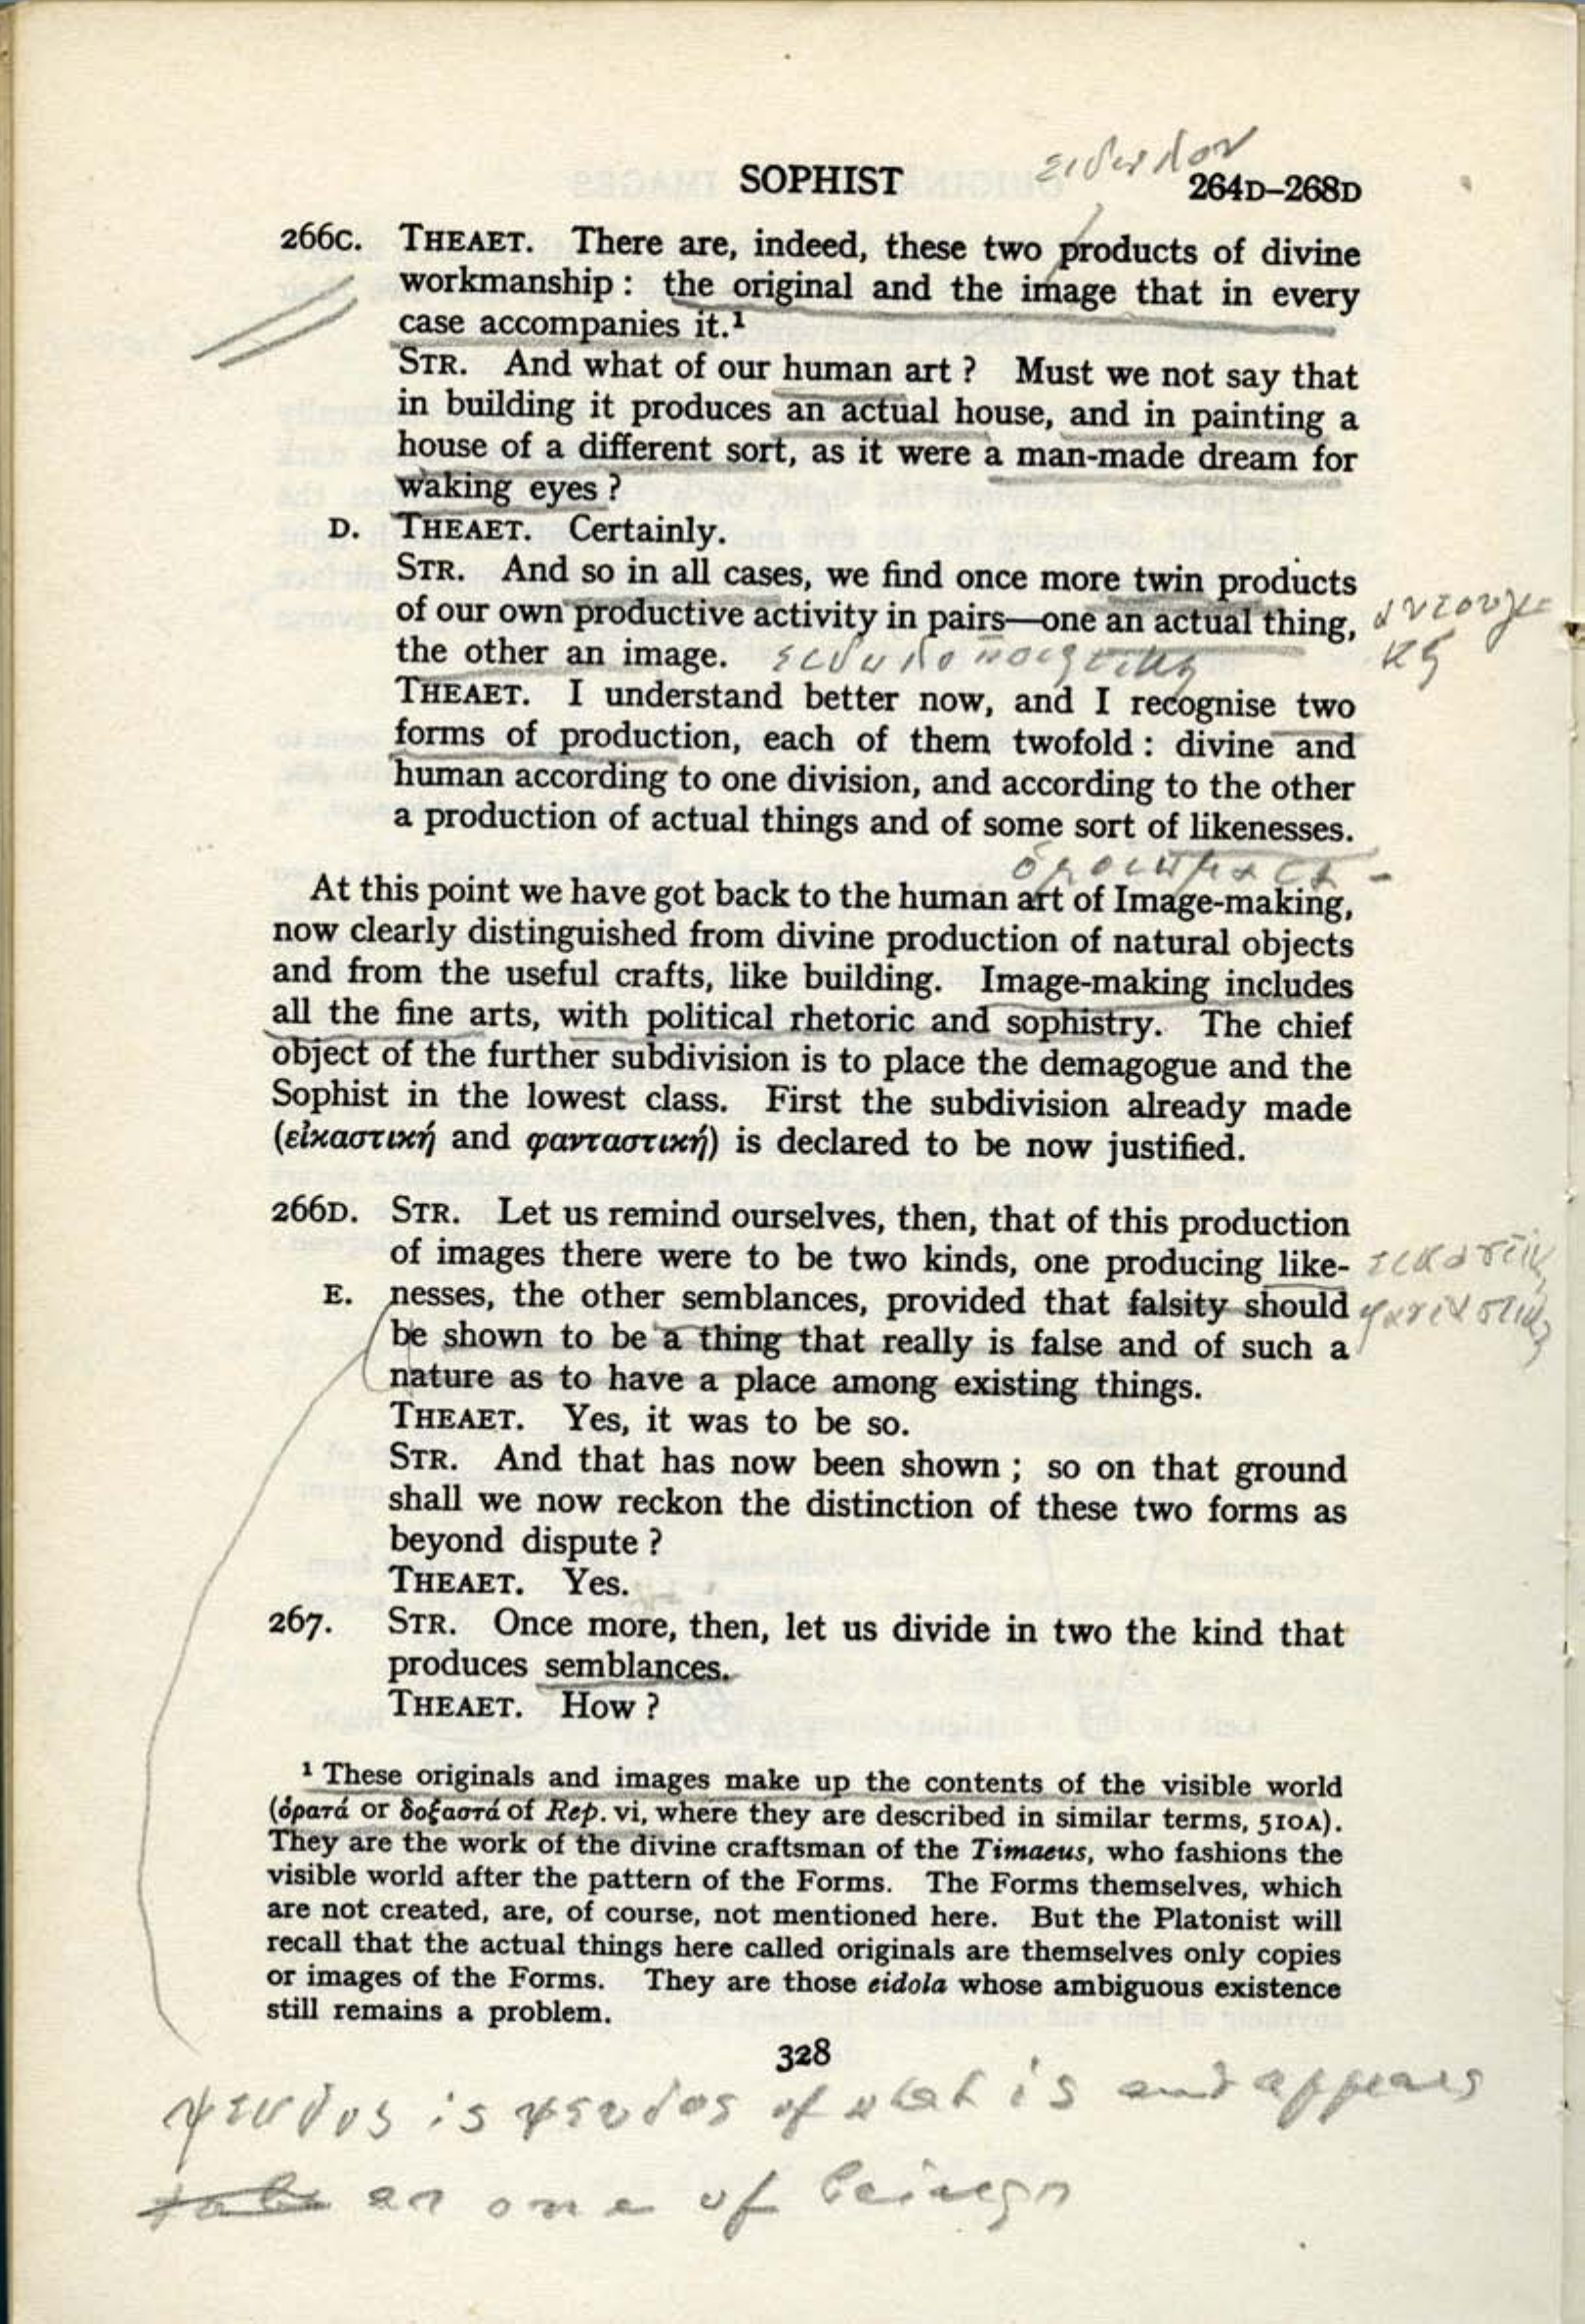 ειδωλον
SOPHIST 264D–268D
266C. THEAET. There are, indeed, these two products of divine
workmanship: the original and the image that in every
case accompanies it.¹
STR. And what of our human art? Must we not say that
in building it produces an actual house, and in painting a
house of a different sort, as it were a man-made dream for
waking eyes?
D. THEAET. Certainly.
STR. And so in all cases, we find once more twin products
of our own productive activity in pairs—one an actual thing,
the other an image. ειδωλοποιητικη
THEAET. I understand better now, and I recognise two
forms of production, each of them twofold: divine and
human according to one division, and according to the other
a production of actual things and of some sort of likenesses.
At this point we have got back to the human art of Image-making,
now clearly distinguished from divine production of natural objects
and from the useful crafts, like building. Image-making includes
all the fine arts, with political rhetoric and sophistry. The chief
object of the further subdivision is to place the demagogue and the
Sophist in the lowest class. First the subdivision already made
(εἰκαστική and φανταστική) is declared to be now justified.
266D. STR. Let us remind ourselves, then, that of this production
of images there were to be two kinds, one producing like- εικαστικη
E. nesses, the other semblances, provided that falsity should φανταστικη
be shown to be a thing that really is false and of such a
nature as to have a place among existing things.
THEAET. Yes, it was to be so.
STR. And that has now been shown; so on that ground
shall we now reckon the distinction of these two forms as
beyond dispute?
THEAET. Yes.
267. STR. Once more, then, let us divide in two the kind that
produces semblances.
THEAET. How?
¹ These originals and images make up the contents of the visible world
(ὁρατά or δοξαστά of Rep. vi, where they are described in similar terms, 510A).
They are the work of the divine craftsman of the Timaeus, who fashions the
visible world after the pattern of the Forms. The Forms themselves, which
are not created, are, of course, not mentioned here. But the Platonist will
recall that the actual things here called originals are themselves only copies
or images of the Forms. They are those eidola whose ambiguous existence
still remains a problem.
328
ψευδος is ψευδος of what is and appears
as one of beings